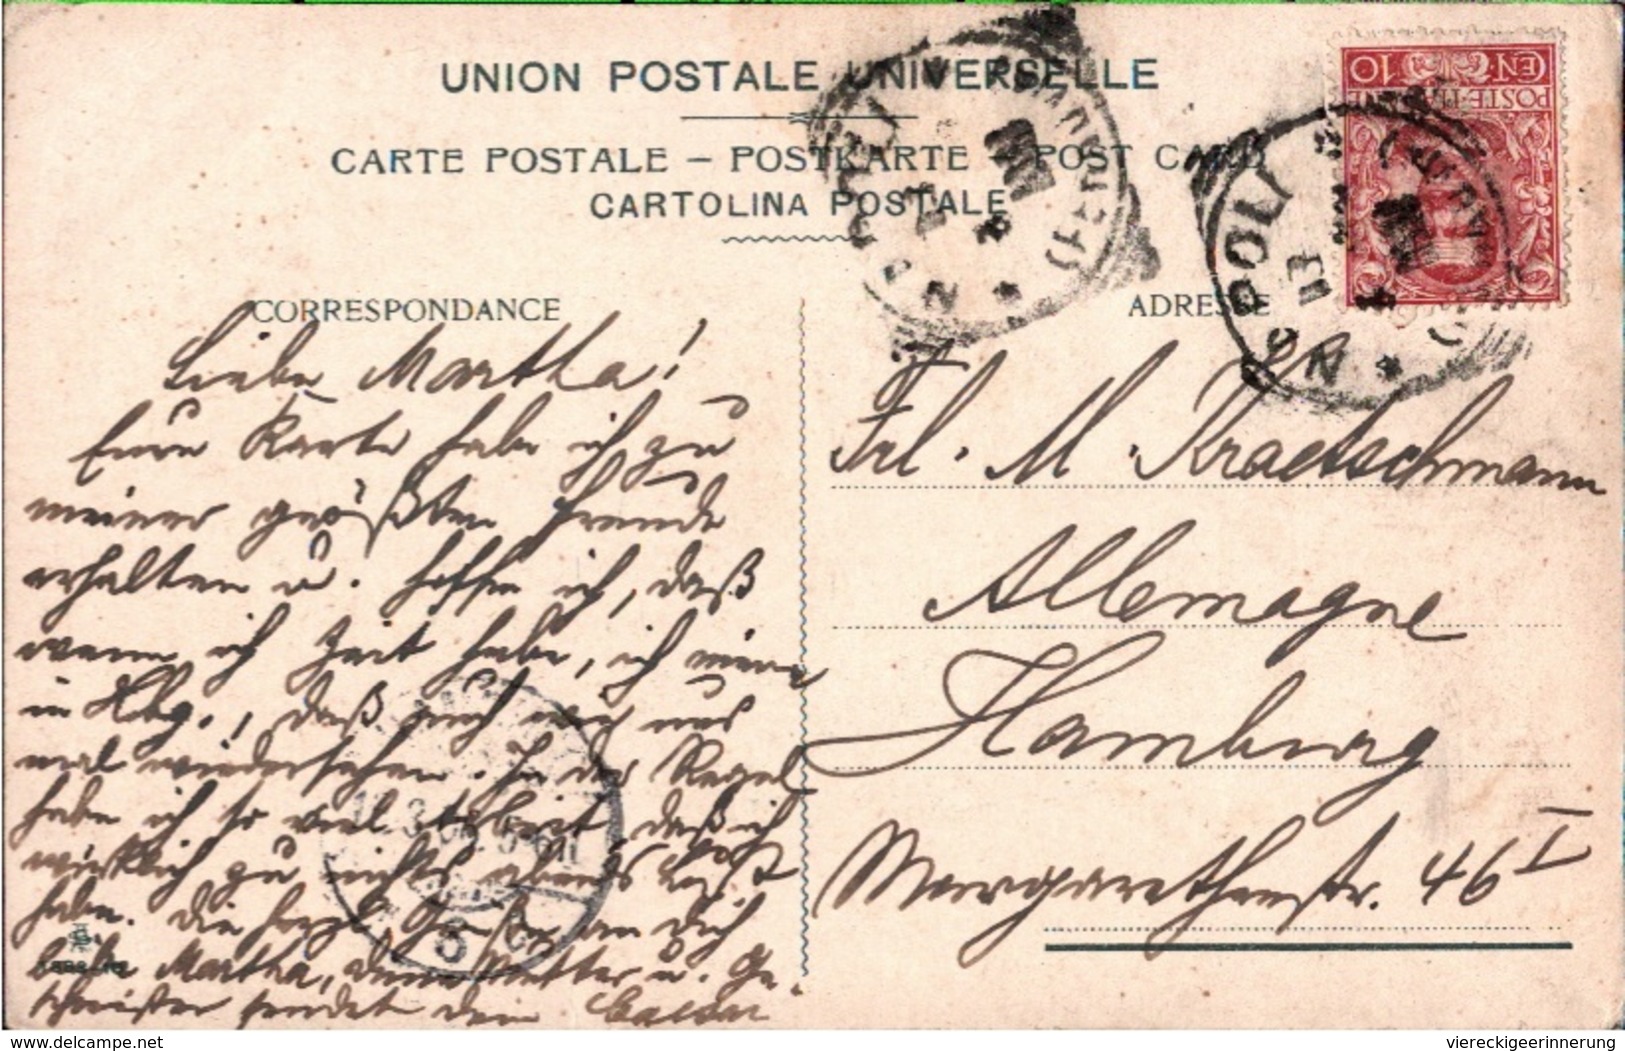 UNION POSTALE UNIVERSELLE
CARTE POSTALE – POSTKARTE – POST CARD
CARTOLINA POSTALE
CORRESPONDANCE
ADRESSE
CEN. 10
POSTE ITAL
NAPOLI
NAPOLI
Liebe Martha!
Eure Karte habe ich zu
meiner größten Freude
erhalten u. hoffe ich, daß
wenn ich Zeit habe, ich
in Hbg., daß auch wir uns
mal wiedersehen. In der Regel
habe ich so viel Arbeit, daß ich
wirklich zu nichts abends Lust
habe. Die Grüße an Dich
liebe Martha, deine Mutter u. Ge-
schwister sendet dein
Frl. M. Kraetschmann
Allemagne
Hamburg
Margarethenstr. 46 I
www.delcampe.net
viereckigeerinnerung